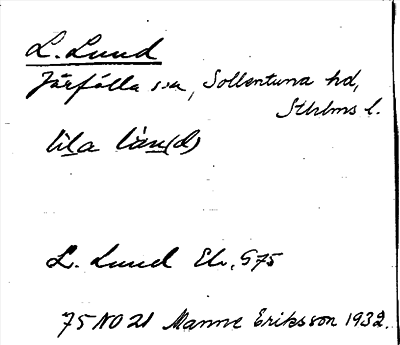 L. Lund
Järfälla sn, Sollentuna hd,
Sthlms l.
lila län(d)
L. Lund Ek. G75
75 NO 21 Manne Eriksson 1932.